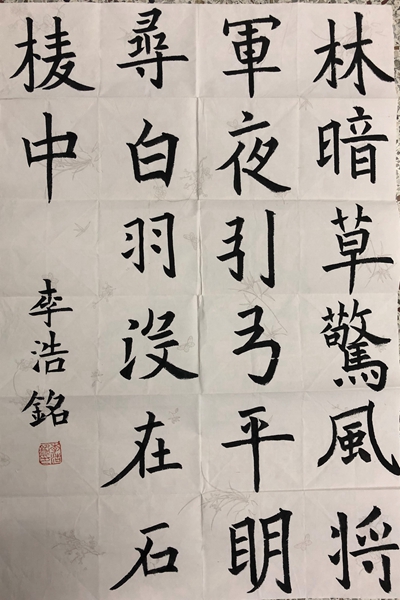 林暗草驚風将
軍夜引弓平明
尋白羽没在石
棱中
李浩銘